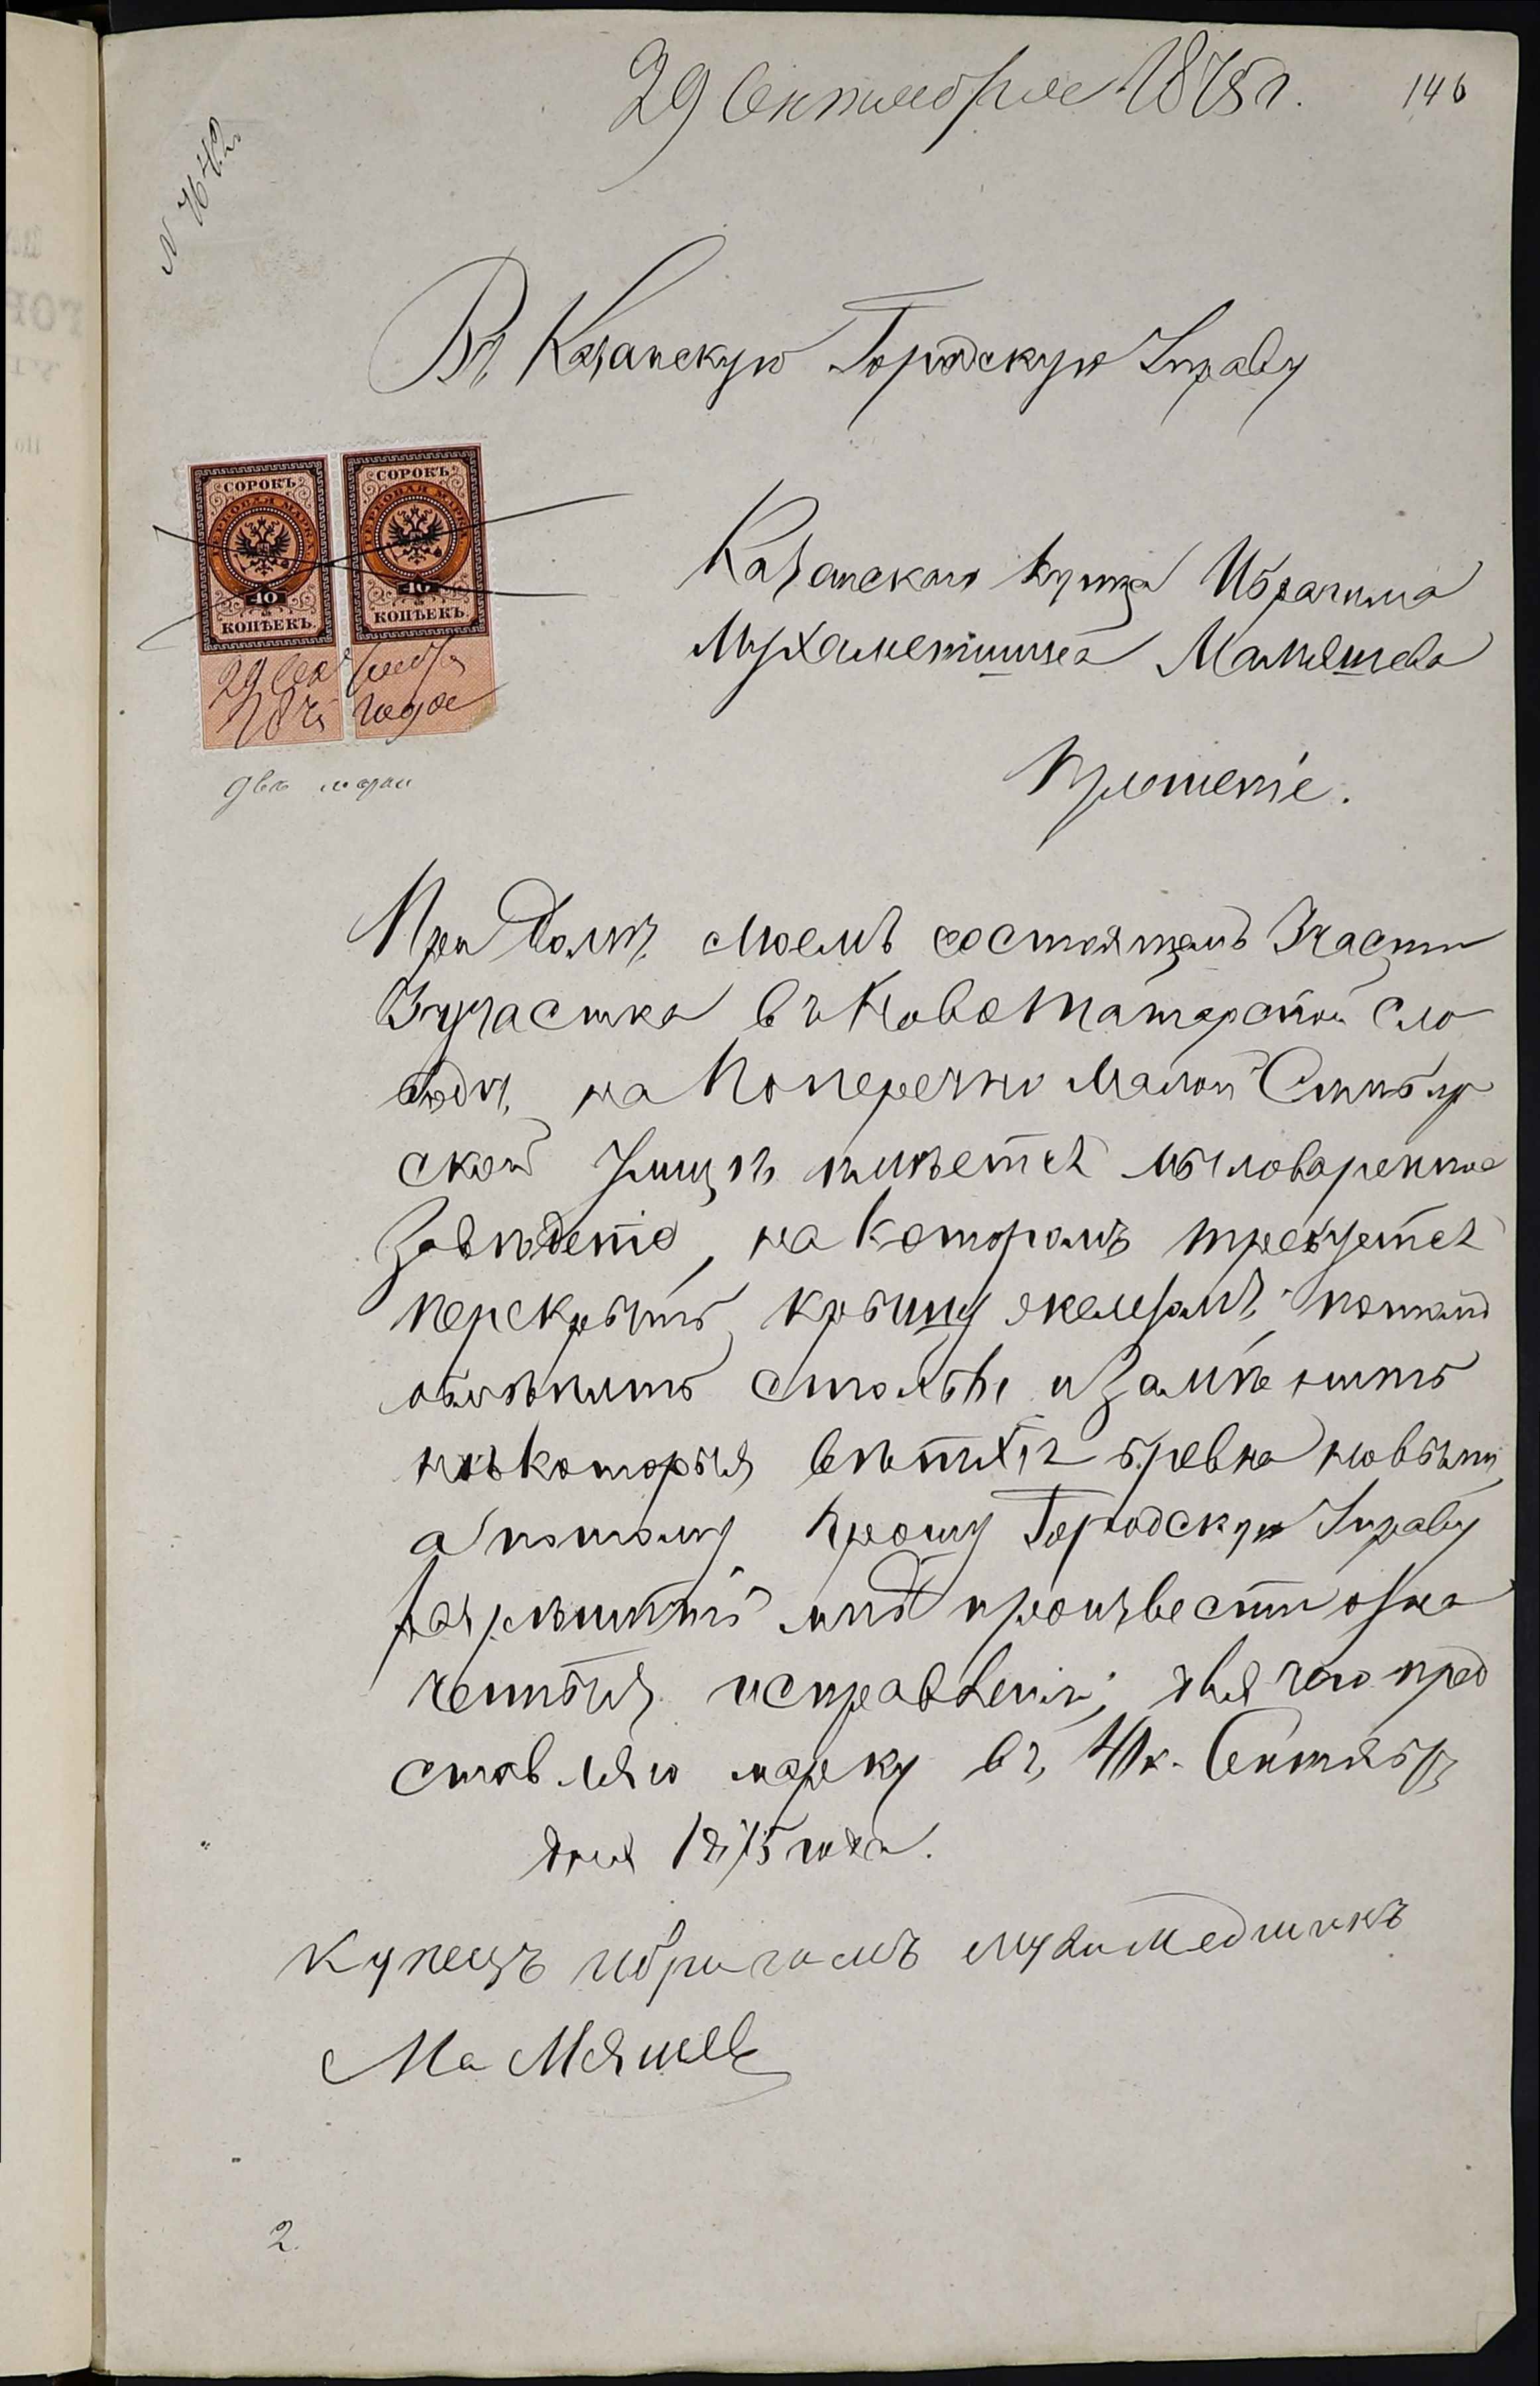 29 Сентября 1875 г.
146
N 7642
Въ Казанскую Городскую Управу
СОРОКЪ
ГЕРБОВАЯ МАРКА
40
КОПѢЕКЪ
СОРОКЪ
ГЕРБОВАЯ МАРКА
40
КОПѢЕКЪ
29 Сентября
1875 года
двѣ марки
Казанскаго Купца Ибрагима
Мухаметшина Мамяшева
Прошеніе.
При Домѣ моемъ состоящемъ 3 части
3 участка въ Новотатарской сло
бодѣ, на Поперечно Малой Симбир
ской Улицѣ имѣется мыловаренное
Заведеніе, на Которомъ требуется
перекрыть крышу железомъ,
столбы и Замѣнить
нѣкоторыя ветхія бревна новыми,
а потому прошу Городскую Управу
разрѣшить мнѣ произвести озна
ченныя исправленія; для чего пред
ставляю марку въ 40 к. Сентября
дня 1875 года.
купецъ ибрагимъ мухамедшинъ
МаМяшев
2.